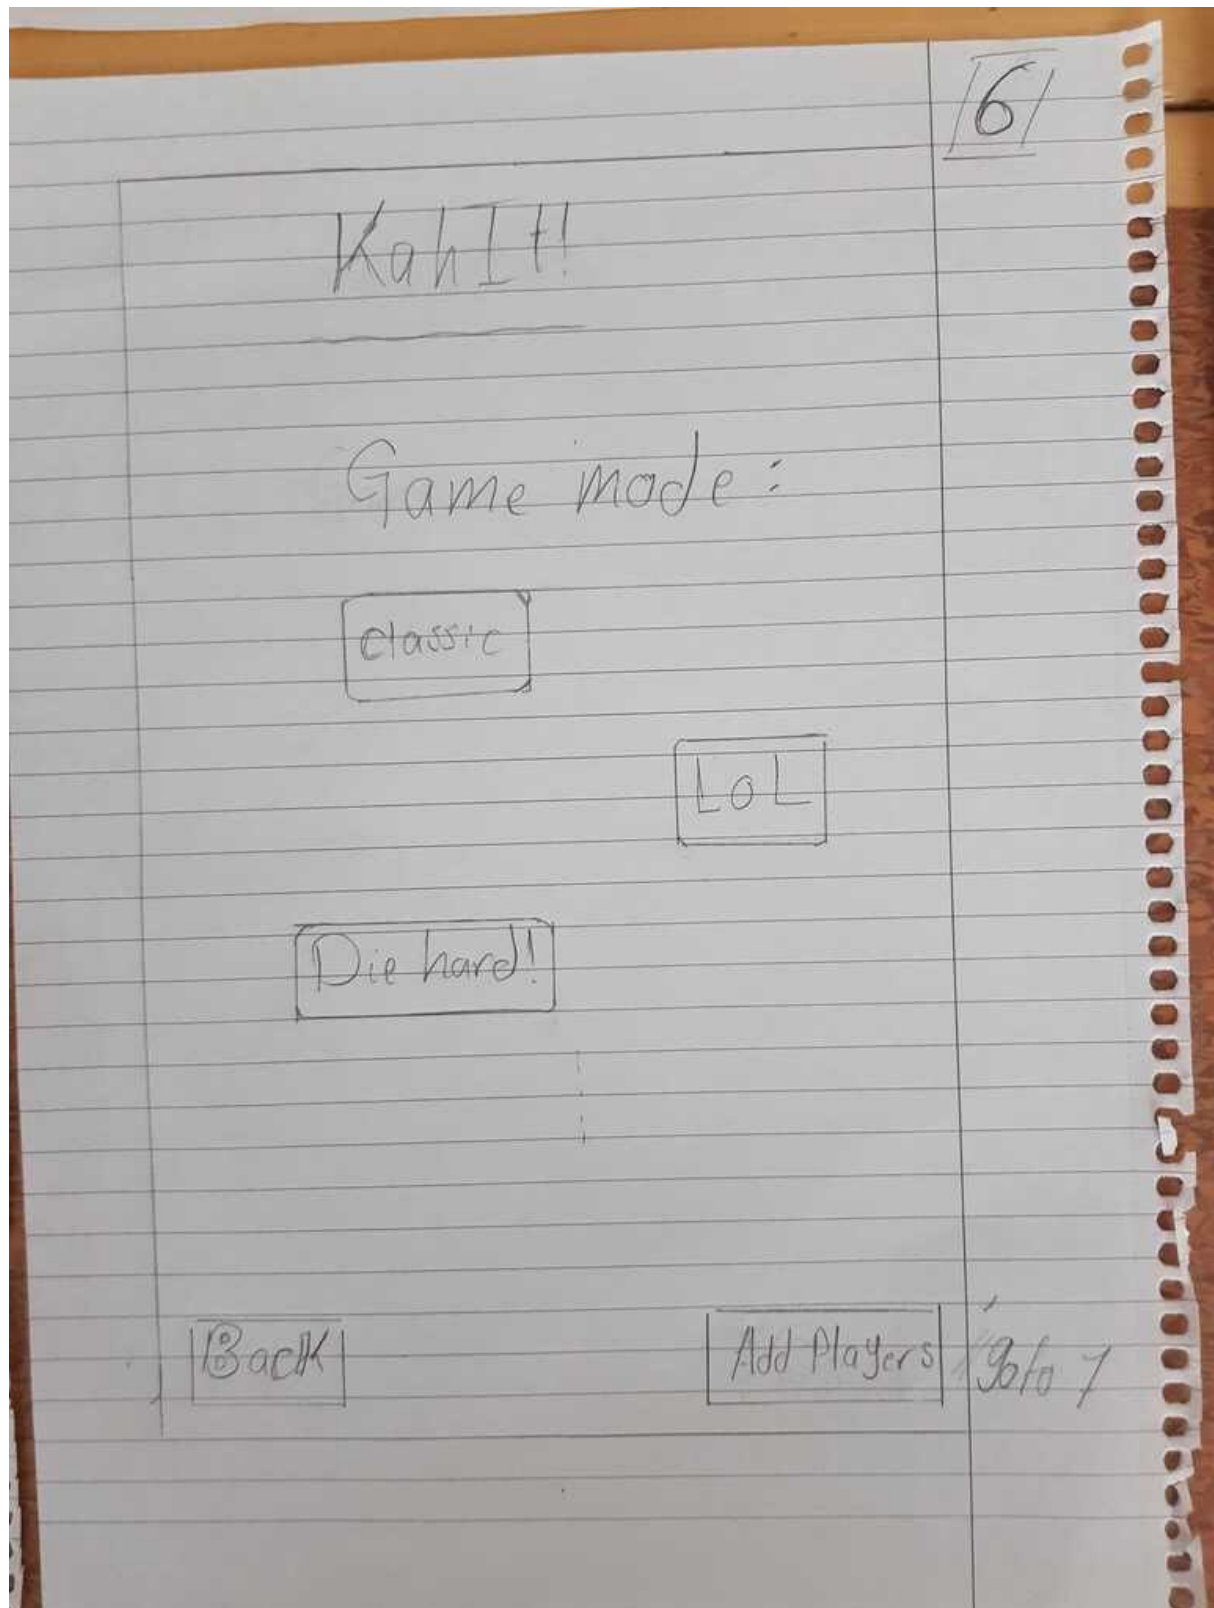 6
KahIt!
Game mode:
classic
LOL
Die hard!
Back
Add Players
goto 7